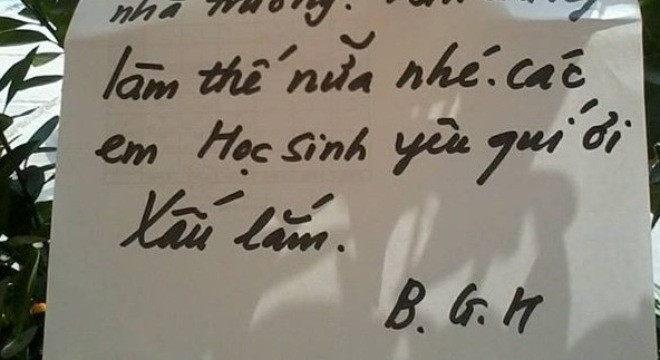 nhà trường.
làm thế nữa nhé. các
em Học sinh yêu quí ơi
Xấu lắm.
B. G. H